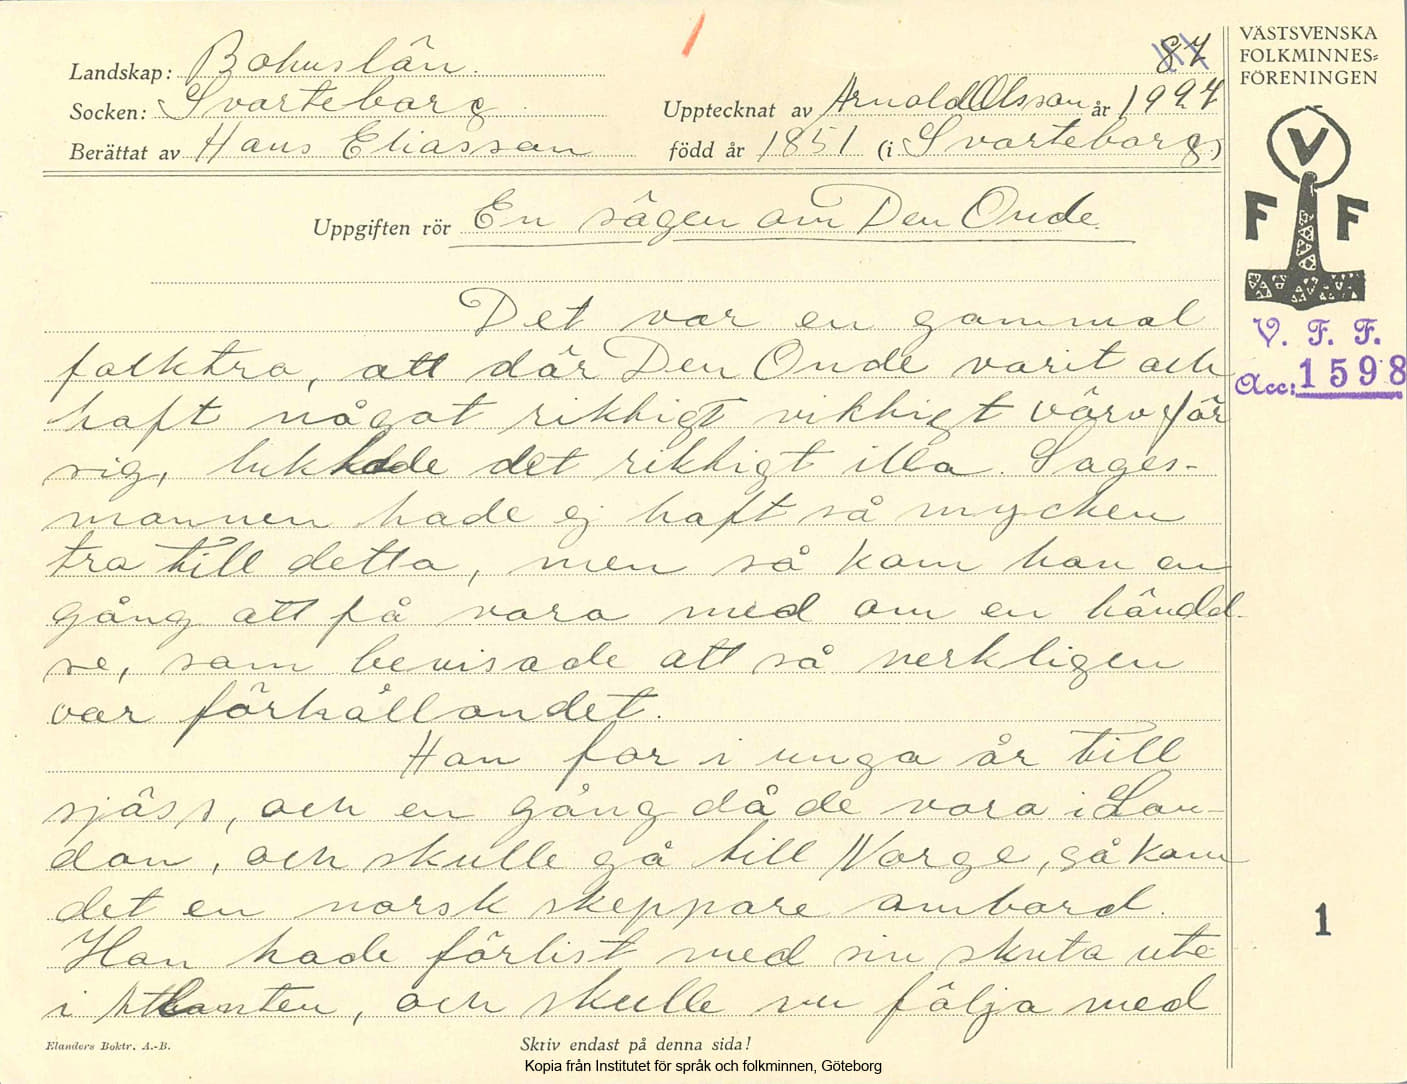 Landskap: Bohuslän. 87
Socken: Svarteborg. Upptecknat av Arnold Olsson år 1927
Berättat av Hans Eliasson född år 1851 (i Svarteborg)
Uppgiften rör En sägen om Den Onde.
Det var en gammal
folktro, att där Den Onde varit och
haft något riktigt viktigt värv för
sig, luktade det riktigt illa. Sages-
mannen hade ej haft så mycken
tro till detta, men så kom han en
gång att få vara med om en händel-
se, som bevisade att så verkligen
var förhållandet.
Han for i unga år till
sjöss, och en gång då de voro i Lon-
don, och skulle gå till Norge, så kom
det en norsk skeppare ombord.
Han hade förlist med sin skuta ute
i Atlanten, och skulle nu följa med
Elanders Boktr. A.-B.
Skriv endast på denna sida!
Kopia från Institutet för språk och folkminnen, Göteborg
VÄSTSVENSKA
FOLKMINNES-
FÖRENINGEN
V
F F
V. F. F.
Acc: 1598
1